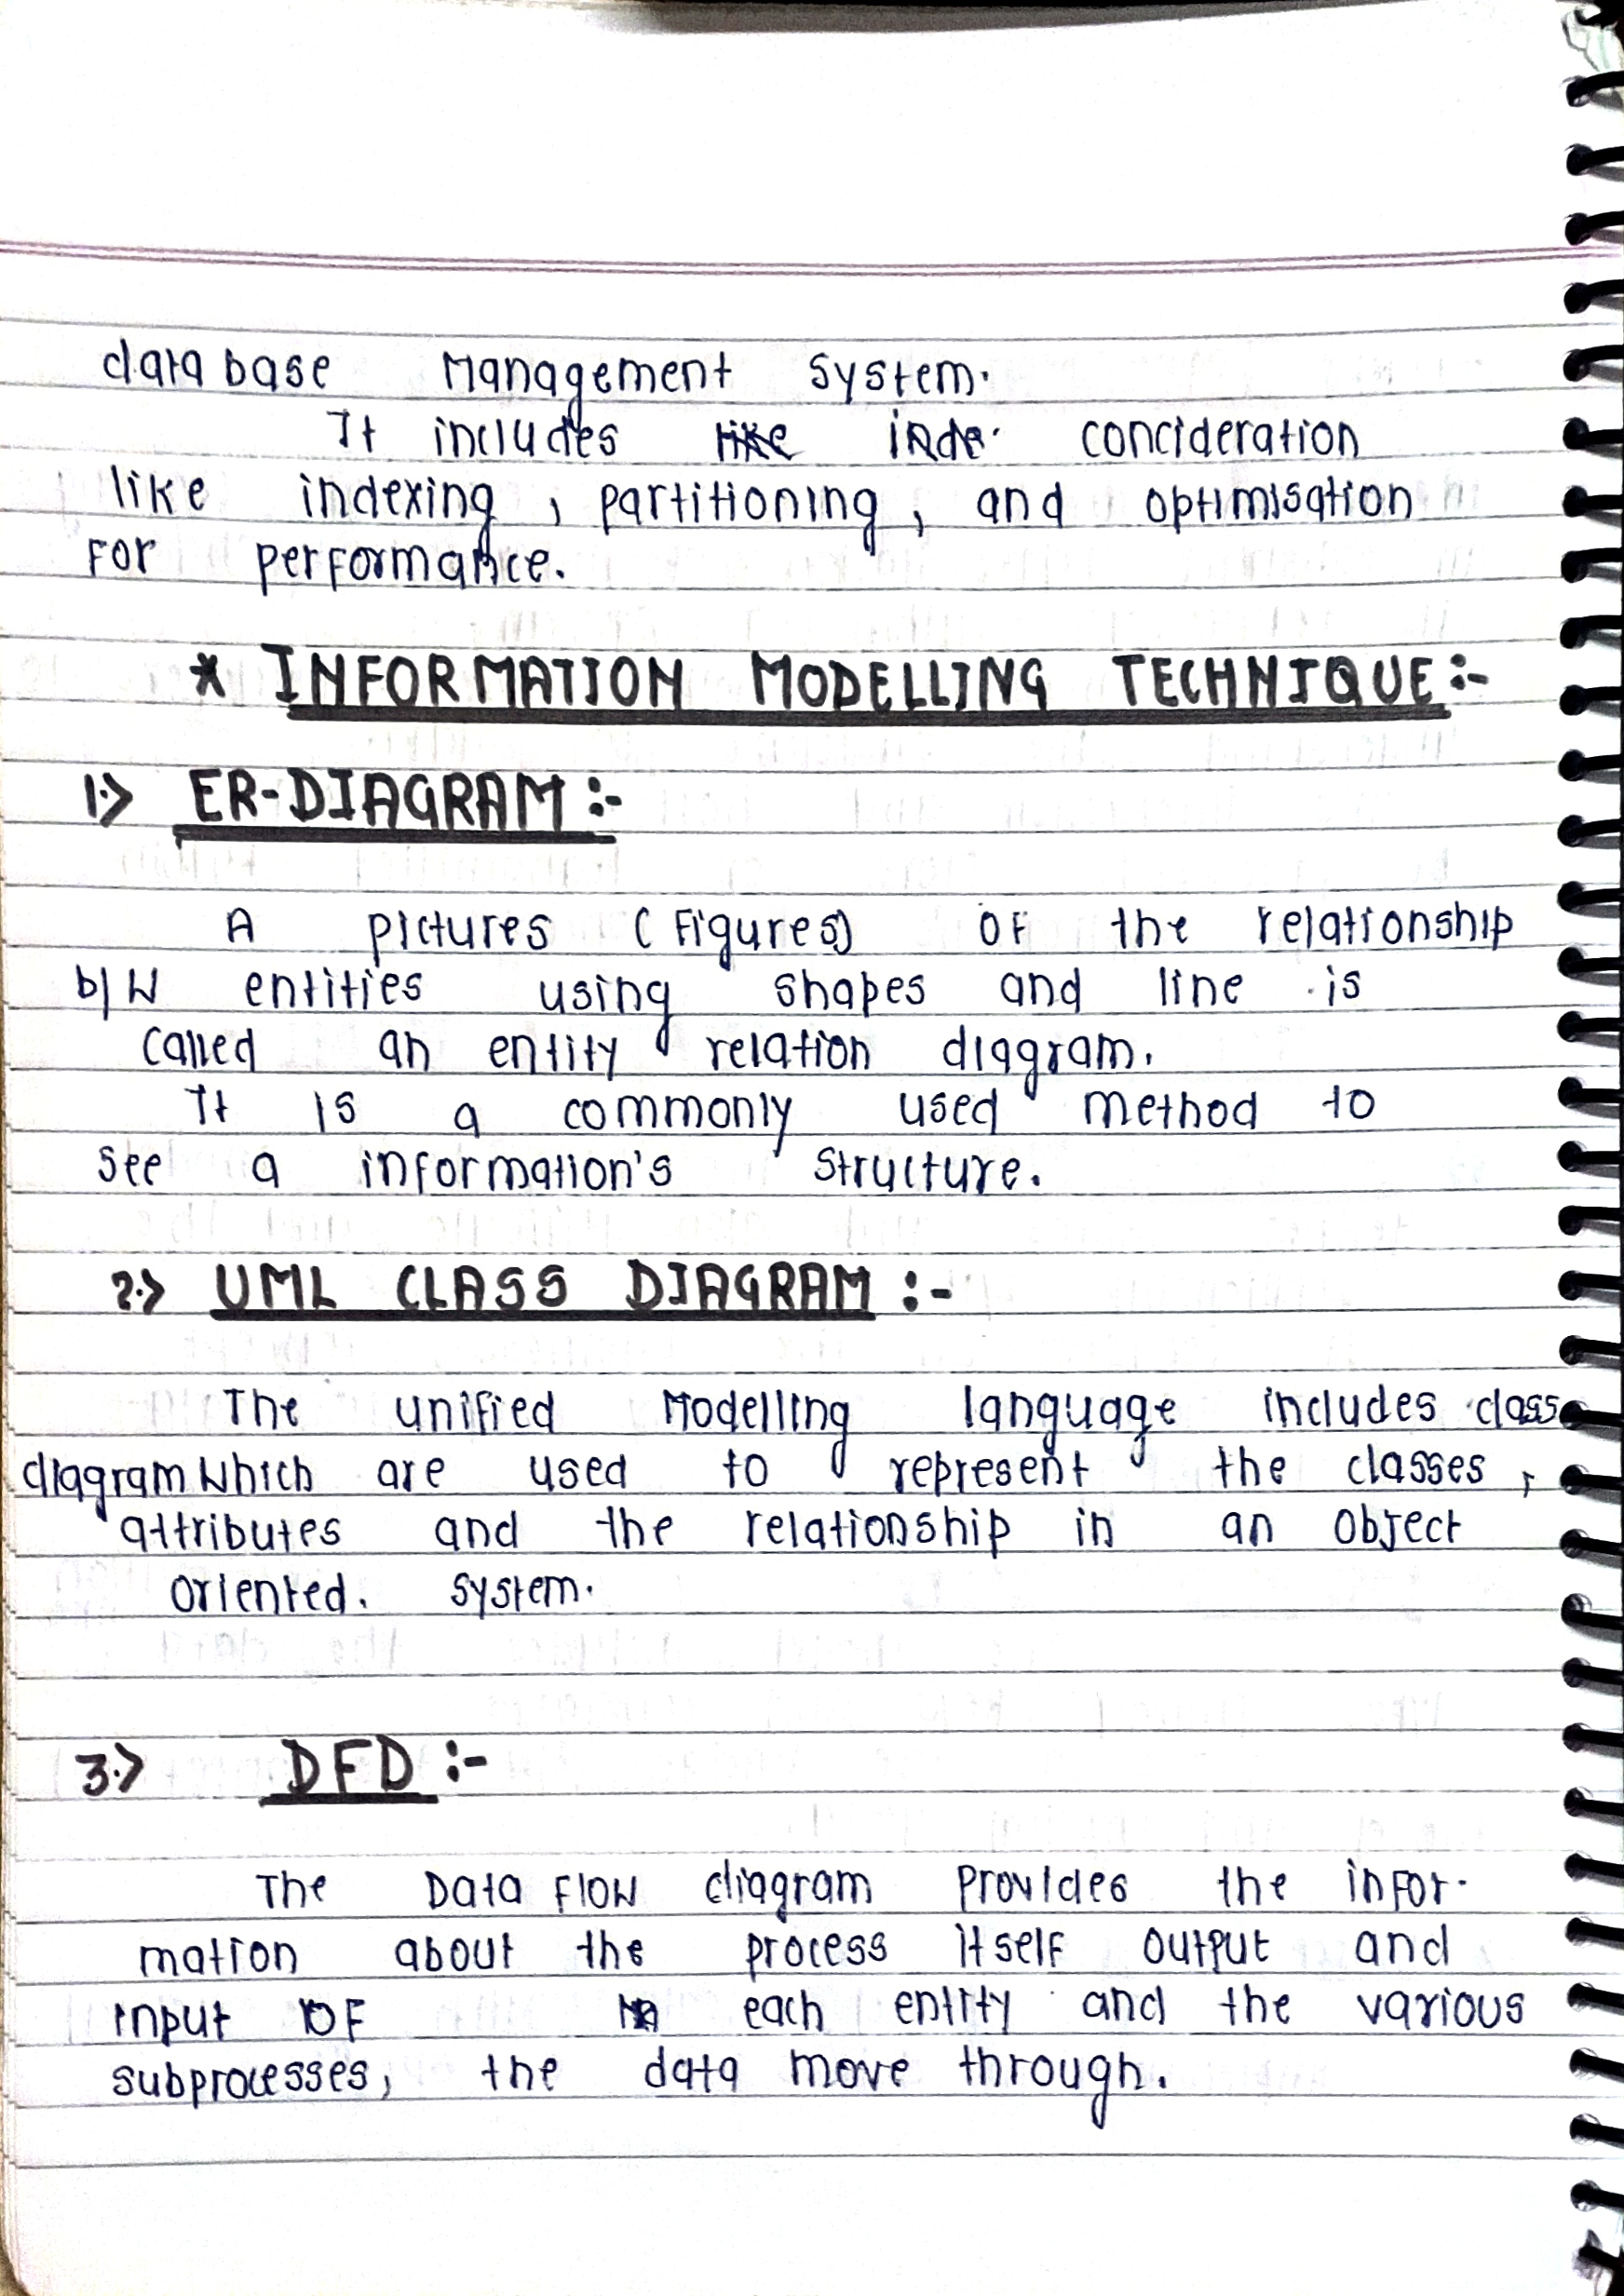 database Management System.
It includes like inde. concideration
like indexing, partitioning, and optimisation
For performance.
* INFORMATION MODELLING TECHNIQUE:-
1.> ER-DIAGRAM:-
A pictures (Figures) OF the relationship
b/w entities using shapes and line is
called an entity relation diagram.
It is a commonly used method to
see a information's structure.
2.> UML CLASS DIAGRAM:-
The unified Modelling language includes class
diagram which are used to represent the classes,
attributes and the relationship in an object
oriented. system.
3.> DFD:-
The Data Flow diagram provides the infor-
mation about the process itself output and
input OF each entity and the various
subprocesses, the data move through.